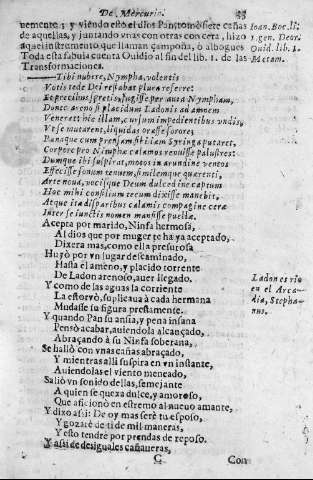 De Mercurio. 33
uemente; y viendo esto el dios Pan, tomó siete cañas
de aquellas, y juntando vnas con otras con cera, hizo
aquel instrumento que llaman çampoña, o albogues
Toda esta fabula cuenta Ouidio al fin del lib. 1. de las
Transformaciones.
Ioan. Boc. li.
1. gen. Deor.
Ouid. lib. 1.
Metam.
Tibi nubere, Nympha, volentis
Votis cede Dei restabat plura referre:
Et precibus spretis, fugisse per auia Nympham,
Donec areno si placidum Ladonis ad amnem
Venerat: hic illam, cursum impedientibus vndis,
Vt se mutarent, liquidas orasse sorores
Panaque cum prensam sibi iam Syringa putaret,
Corpore pro Nimphæ calamos tenuisse palustres:
Dumque ibi suspirat, motos in arundine ventos
Effecisse sonum tenuem, similemque querenti,
Arte noua, vocisque Deum dulcedine captum
Hoc mihi consilium tecum dixisse manebit,
Atque ita disparibus calamis compagine ceræ
Inter se iunctis nomen manisse puellæ.
Acepta por marido, Ninfa hermosa,
Al dios que por muger te ha ya aceptado,
Dixera mas, como ella presurosa
Huyò por vn lugar descaminado,
Hasta el ameno, y placido torrente
De Ladon arenoso, auer llegado.
Y como de las aguas la corriente
La estorvò, suplicaua à cada hermana
Mudasse su figura prestamente.
Ladon es rio
en el Arca-
dia, Stepha-
nus.
Y quando Pan su ansia, y pena insana
Pensò acabar, auiendola alcançado,
Abraçando à su Ninfa soberana,
Se hallò con vnas cañas abraçado,
Y mientras alli suspira en vn instante,
Auiendolas el viento meneado,
Saliò vn sonido dellas, semejante
A quien se quexa dulce, y amoroso,
Que aficionò en estremo al nueuo amante,
Y dixo assi: De oy mas serè tu esposo,
Y gozarè de ti de mil maneras,
Y esto tendrè por prendas de reposo.
Y assi de desiguales cañaueras,
C Con